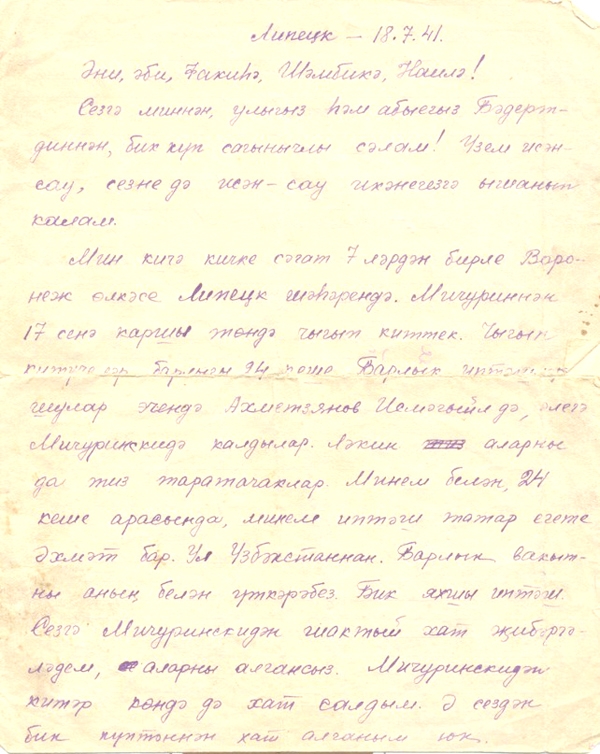 Липецк – 18.7.41.
Әни, әби, Факиһә, Шәмбикә, Наилә!
Сезгә миннән, улыгыз һәм абыегыз Бәдерт-
диннән, бик күп сагынычлы сәлам! Үзем исән-
сау, сезне дә исән-сау икәнегезгә ышанып
калам.
Мин кичә кичке сәгат 7 ләрдән бирле Воро-
неж өлкәсе Липецк шәһәрендә. Мичуриннән
17 сенә каршы төндә чыгып киттек. Чыгып
китүчеләр барлыгы 24 кеше. Барлык иптәшләр
шулар эчендә Ахметзянов Исмәгыйль дә, әлегә
Мичуринскидә калдылар. Ләкин аларны
да тиз таратачаклар. Минем белән, 24
кеше арасында, минем иптәш татар егете
Әхмәт бар. Ул Үзбәкстаннан. Барлык вакыт-
ны аның белән үткәрәбез. Бик яхшы иптәш.
Сезгә Мичуринскидән шактый хат җибәргә-
ләдем, аларны алгансыз. Мичуринскидән
китәр көндә дә хат салдым. Ә сездән
бик күптәннән хат алганым юк.